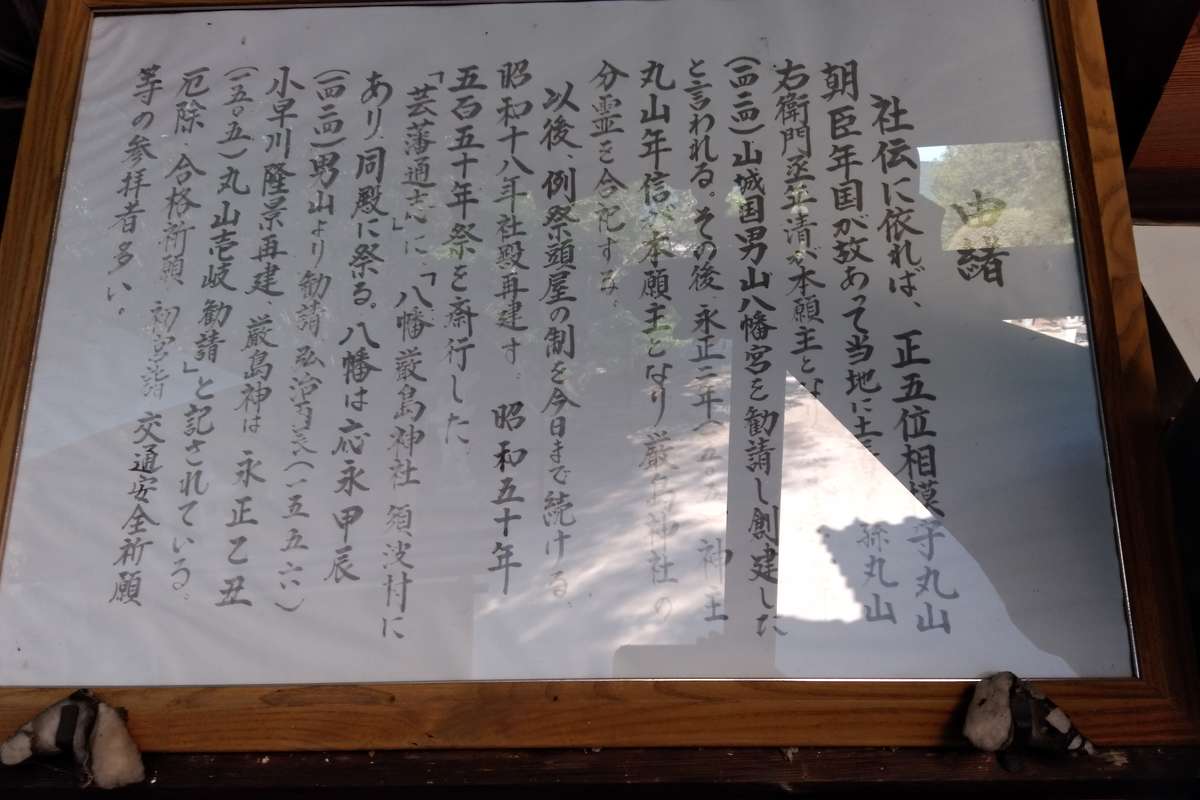 由緒
社伝に依れば、正五位相模守丸山
朝臣年国が故あって当地に土 孫丸山
右衛門丞正清が本願主となり
(一四二四)山城国男山八幡宮を勧請し創建した
と言われる。その後、永正二年(一五〇五)神主
丸山年信が本願主となり厳島神社の
分霊を合祀する。
以後、例祭頭屋の制を今日まで続ける。
昭和十八年社殿再建す。昭和五十年
五百五十年祭を斎行した。
「芸藩通志」に、「八幡厳島神社 須波村に
あり、同殿に祭る。八幡は応永甲辰
(一四二四)男山より勧請、弘治 (一五五六)
小早川隆景再建、厳島神は永正乙丑
(一五〇五)丸山壱岐勧請」と記されている。
厄除、合格祈願、初宮詣、交通安全祈願
等の参拝者多い。